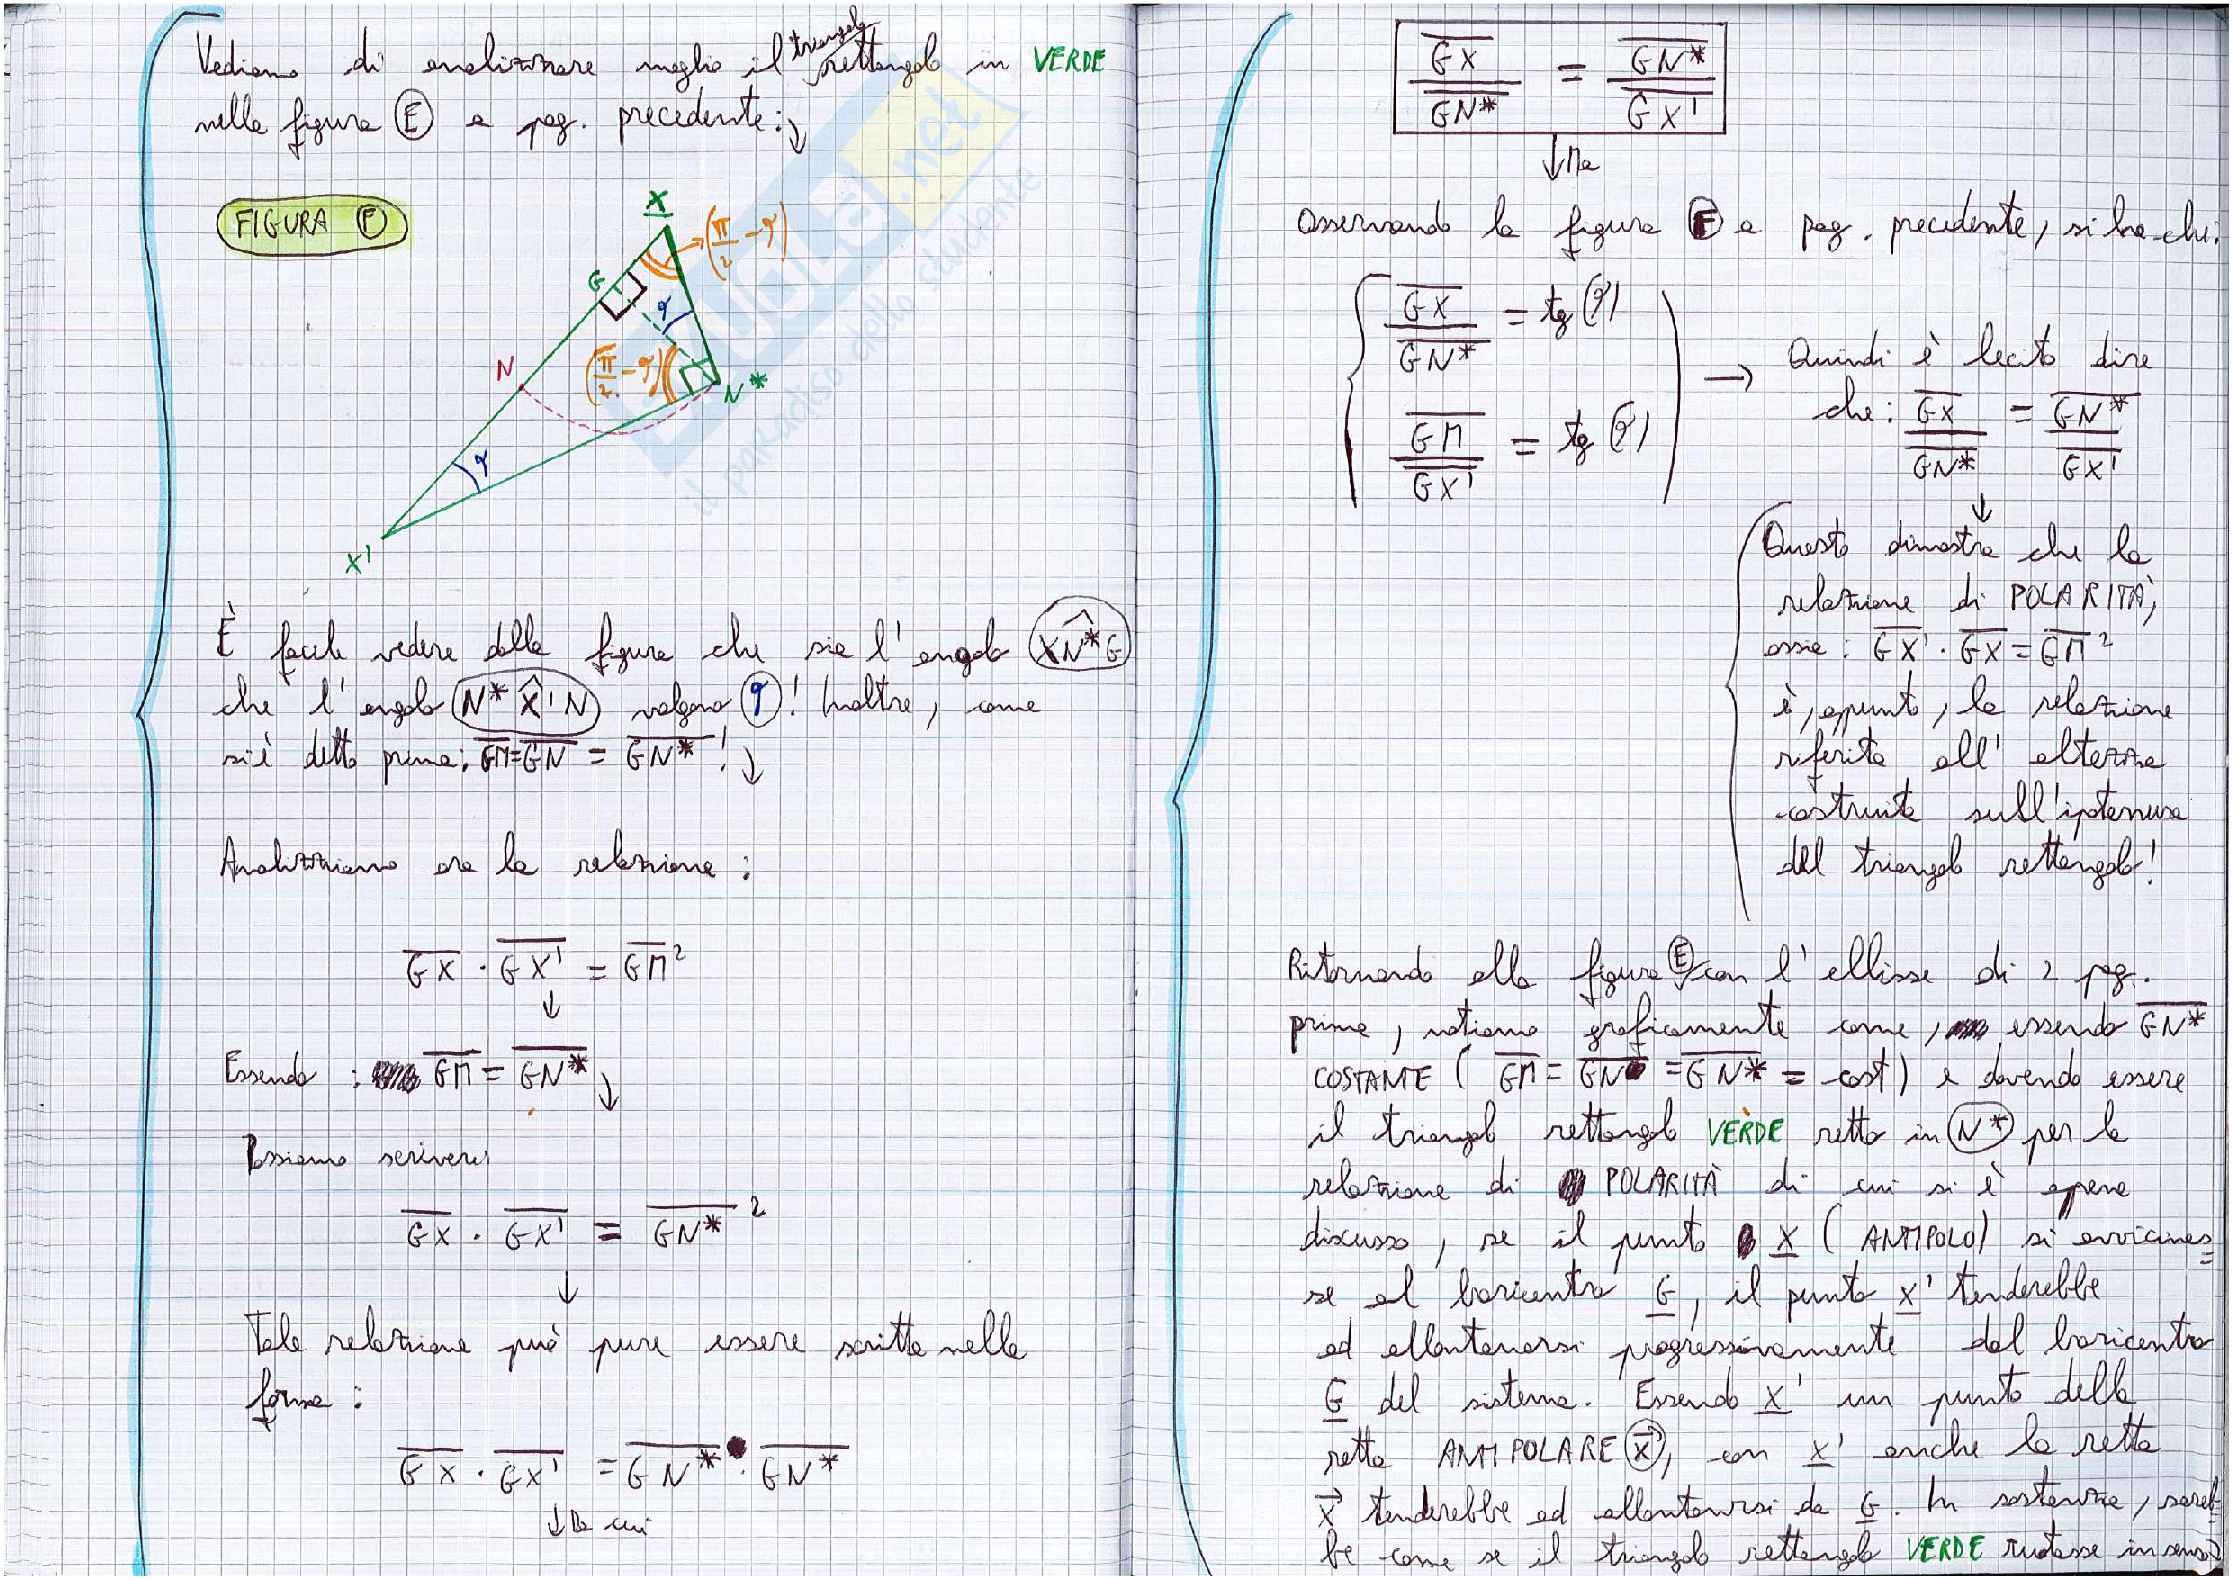 Vediamo di analizzare meglio il triangolo rettangolo in VERDE
nella figura (E) a pag. precedente:↓
FIGURA (F)
X
(π/2 - φ)
G
φ
N
(π/2 - φ)
N*
φ
X'
È facile vedere dalla figura che sia l'angolo XN*G
che l'angolo N*X'N valgono φ! Inoltre, come
si è detto prima: GM=GN = GN*! ↓
Analizziamo ora la relazione:
GX · GX' = GM²
↓
Essendo: GM = GN* ↓
Possiamo scrivere:
GX · GX' = GN*²
↓
Tale relazione può pure essere scritta nella
forma:
GX · GX' = GN* · GN*
↓ Da cui
GX/GN* = GN*/GX'
↓ Ma
Osservando la figura (F) a pag. precedente, si ha che:
GX/GN* = tg(φ)
GM/GX' = tg(φ)
→ Quindi è lecito dire
che: GX/GN* = GN*/GX'
↓
Questo dimostra che la
relazione di POLARITÀ,
ossia: GX' · GX = GM²
è, appunto, la relazione
riferita all'altezza
costruita sull'ipotenusa
del triangolo rettangolo!
Ritornando alla figura (E) con l'ellisse di 2 pag.
prima, notiamo graficamente come, essendo GN*
COSTANTE (GM = GN = GN* = cost) e dovendo essere
il triangolo rettangolo VERDE retto in N* per la
relazione di POLARITÀ di cui si è appena
discusso, se il punto X (ANTIPOLO) si avvicinas=
se al baricentro G, il punto X' tenderebbe
ad allontanarsi progressivamente dal baricentro
G del sistema. Essendo X' un punto della
retta ANTIPOLARE (x⃗), con X' anche la retta
x⃗ tenderebbe ad allontanarsi da G. In sostanza, sareb-
be come se il triangolo rettangolo VERDE ruotasse in senso
il paradiso dello studente
.net